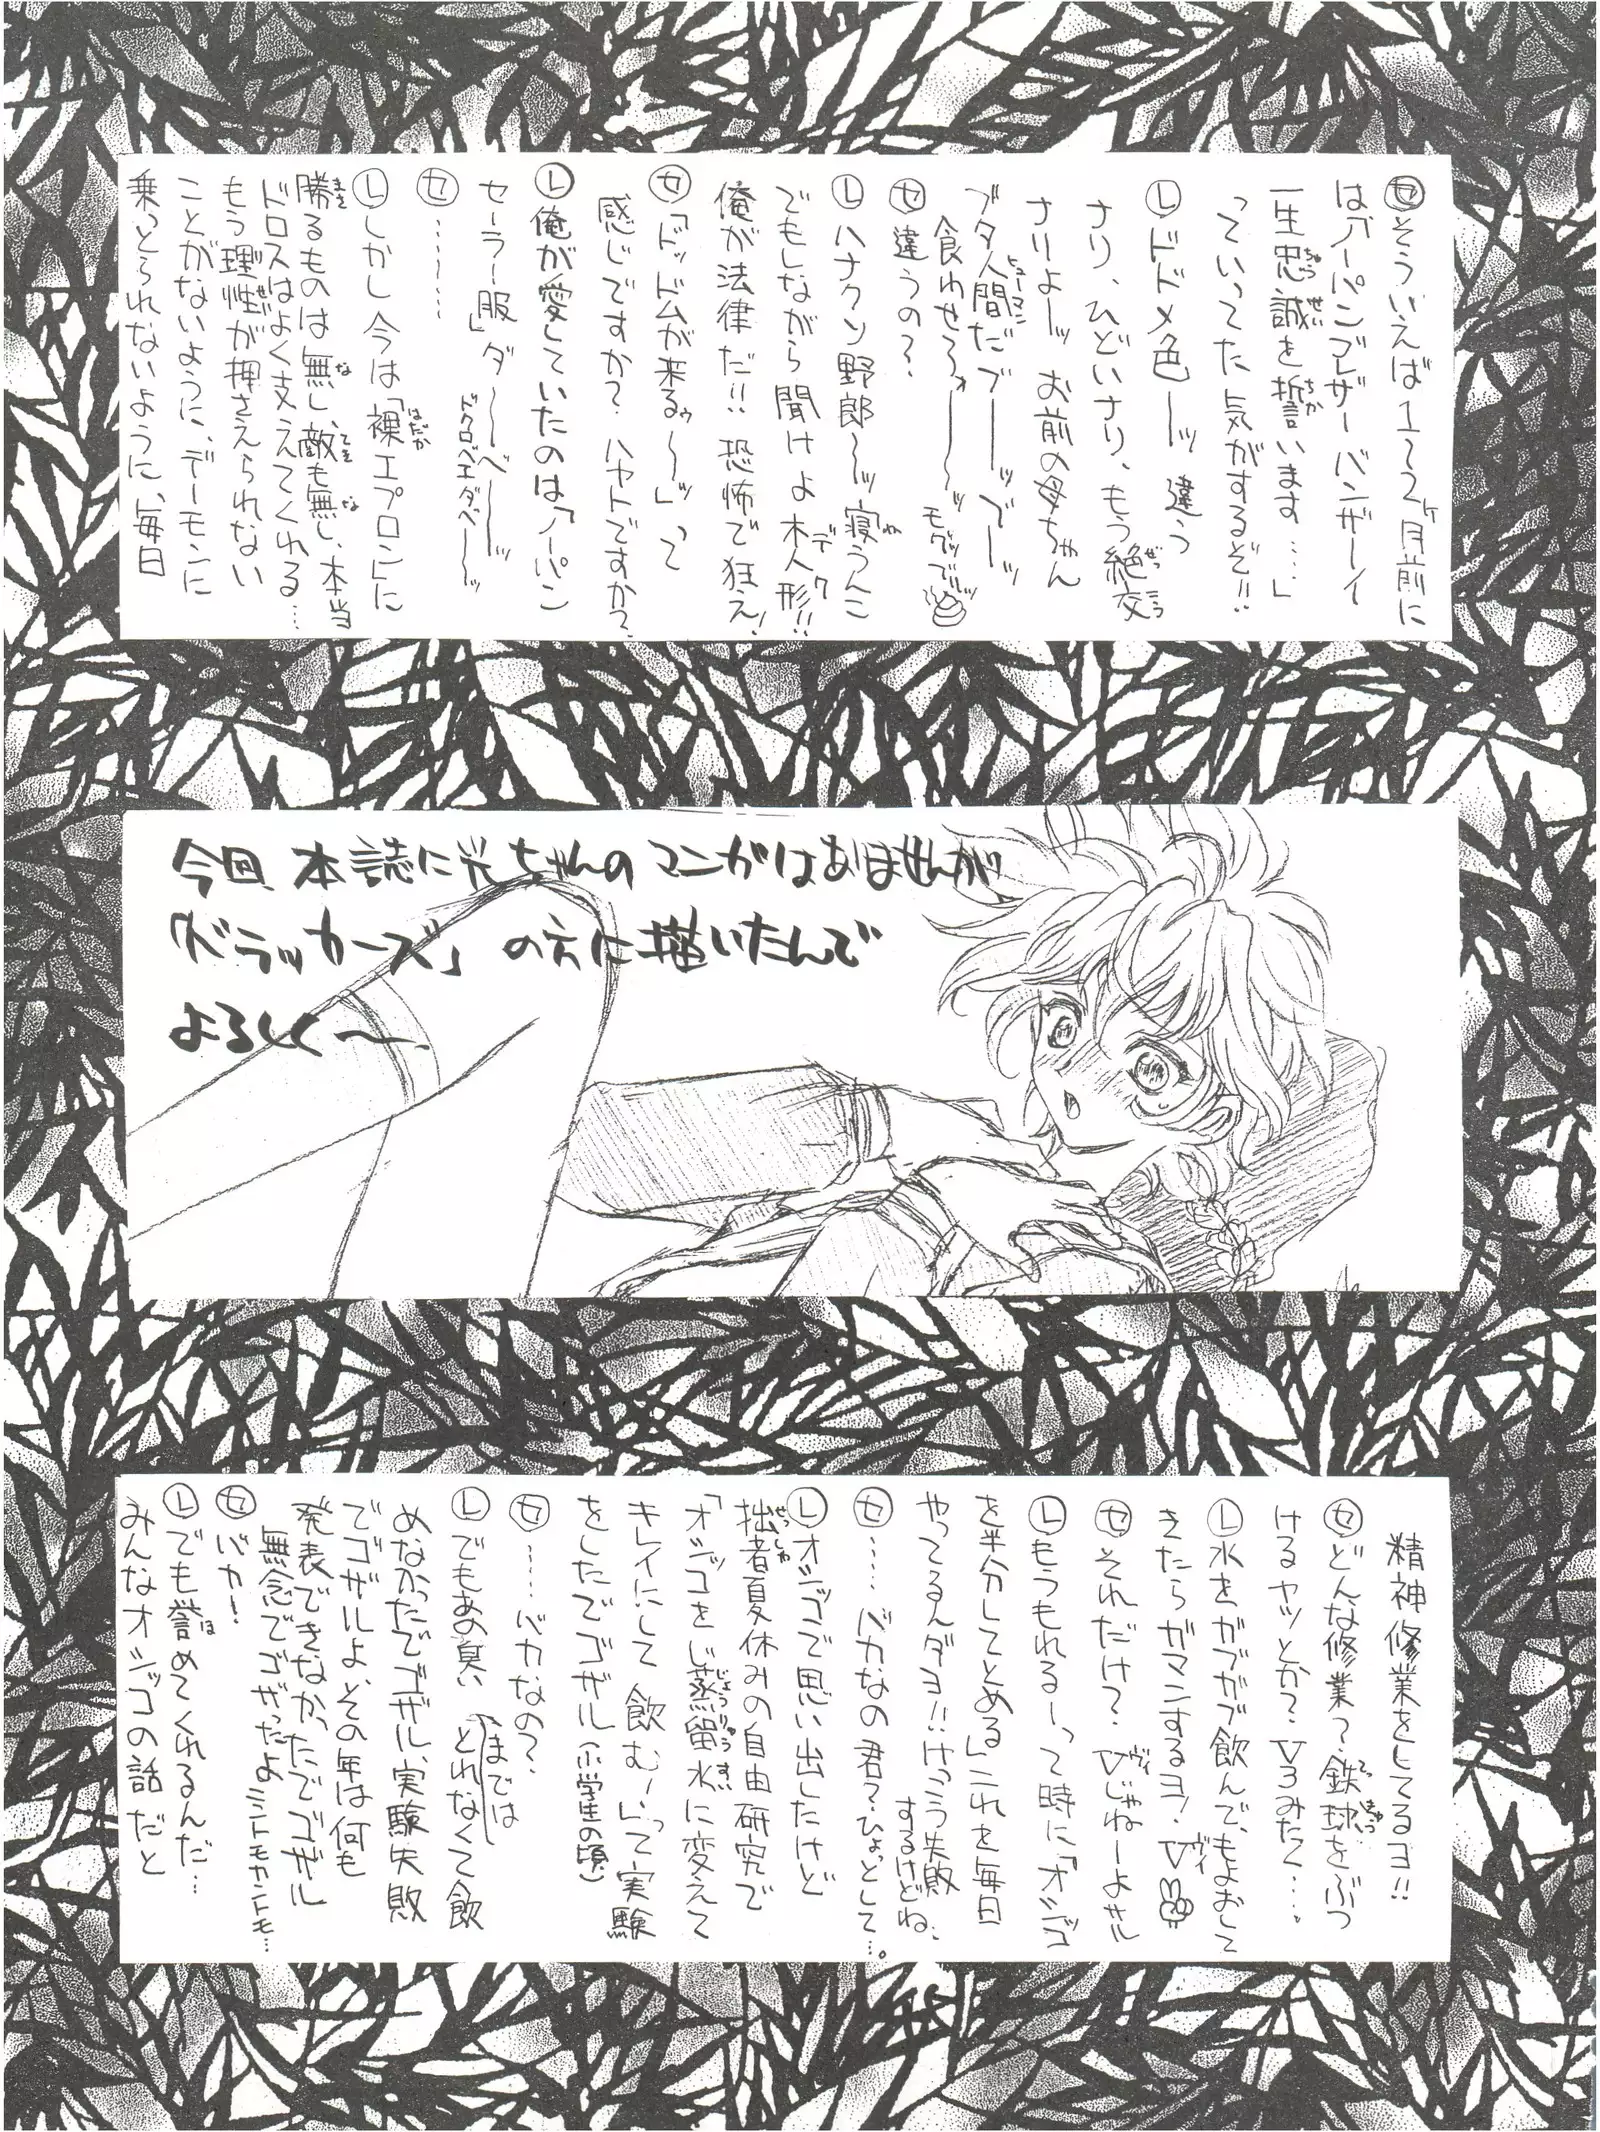 ㋝そういえば1〜2ヶ月前に
は「ノーパンブレザーバンザーイ
一生忠誠を誓います……」
っていってた気がするぞ!!
Ⓛドドメ色〜ッ 違う
ナリ、ひどいナリ、もう絶交
ナリよーッ お前の母ちゃん
ブタ人間だブーーッブーーッ
食わせろォーーーッ モグッブリッ
㋝違うの?
Ⓛハナクソ野郎〜ッ 寝うんこ
でもしながら聞けよ木人形!!
俺が法律だ!! 恐怖で狂え!
㋝「ドッドムが来るゥ〜ッ」って
感じですか? ハヤトですか?
Ⓛ俺が愛していたのは「ノーパン
セーラー服」ダ〜〜ベ〜〜ッ
ドクロベエダベ〜ッ
㋝…………
Ⓛしかし今は「裸エプロン」に
勝るものは無し、敵も無し、本当
ドロスはよく支えてくれる…
もう理性が押さえられない
ことがないように、デーモンに
乗っとられないように、毎日
今回 本誌に光ちゃんのマンガはありませんが
「ドラッカーズ」の方に描いたんで
よろしく〜
精神修業をしてるヨ!!
㋝どんな修業? 鉄球をぶつ
けるヤッとか? V3みたく…。
Ⓛ水をガブガブ飲んで、もよおして
きたらガマンするヨ! V
㋝それだけ? Vじゃねーよサル
Ⓛもうもれるーって時に「オシッコ
を半分してとめる」これを毎日
やってるんダヨ!! けっこう失敗
するけどね、
㋝……バカなの君? ひょっとして…。
Ⓛオシッコで思い出したけど
拙者夏休みの自由研究で
「オシッコをじ蒸留水に変えて
キレイにして飲むー」って実験
をしたでゴザル(小学生の頃)
㋝……バカなの?
Ⓛでもあの臭いとれなくて飲
までは
めなかったでゴザル、実験失敗
でゴザルよ、その年は何も
発表できなかったでゴザル
無念でゴザったよ ミントモカントモ…
㋝バカー!
Ⓛでも誉めてくれるんだ…
みんなオシッコの話だと